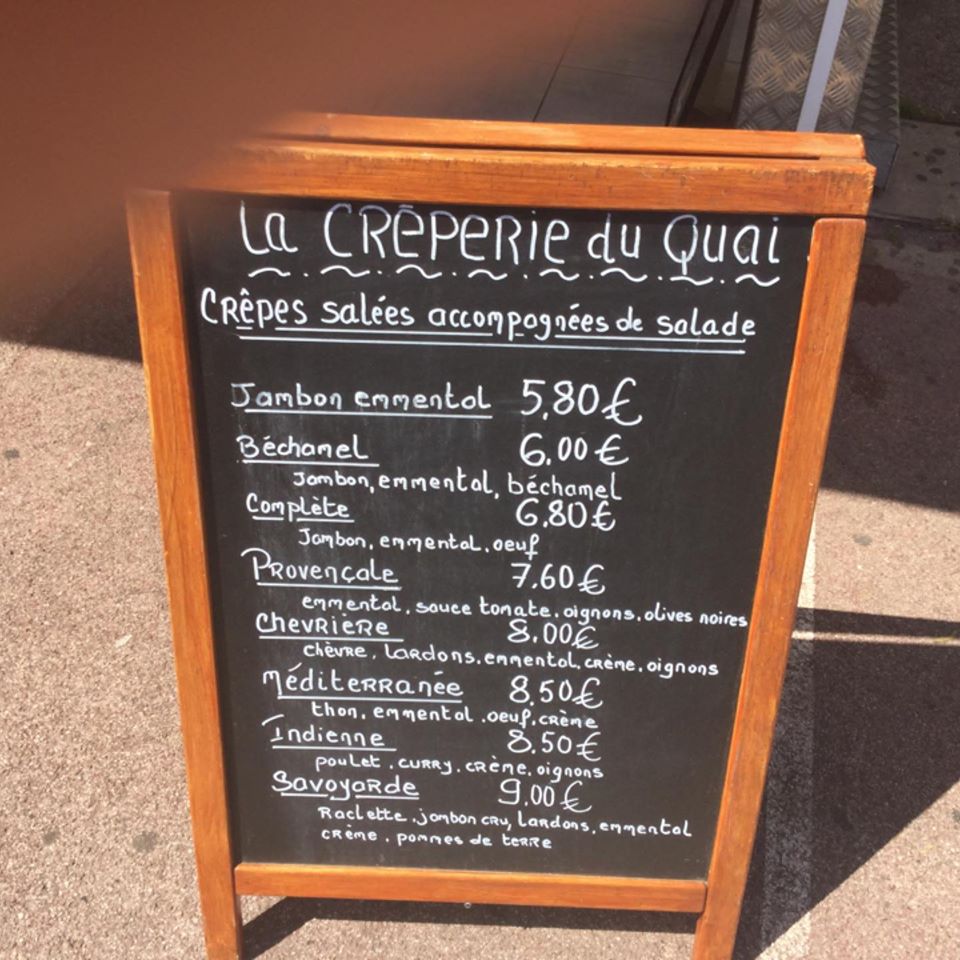 La CRÊPERIE du Quai
CRÊPES salées accompagnées de salade
Jambon emmental 5,80 €
Béchamel 6,00 €
Jambon, emmental, béchamel
Complète 6,80 €
Jambon, emmental, oeuf
Provençale 7,60 €
emmental, sauce tomate, oignons, olives noires
Chevrière 8,00 €
chèvre, lardons, emmental, crème, oignons
Méditerranée 8,50 €
thon, emmental, oeuf, crème
Indienne 8,50 €
poulet, curry, crème, oignons
Savoyarde 9,00 €
Raclette, jambon cru, lardons, emmental
crème, pommes de terre